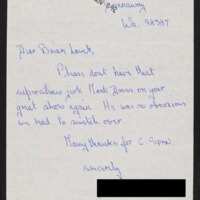 Spanaway
Wa. 98387
Dear Brian Lamb,
Please don't have that
jerk Mark Davis on your
great show again. He was so obnoxious
we had to switch over.
Many thanks for C. Span
Sincerely